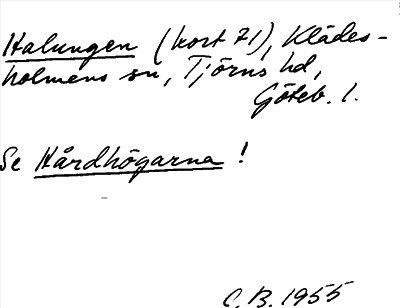 Halungen (kort 71), Klädes-
holmens sn, Tjörns hd,
Göteb. l.
Se Hårdhögarna !
C.B. 1955